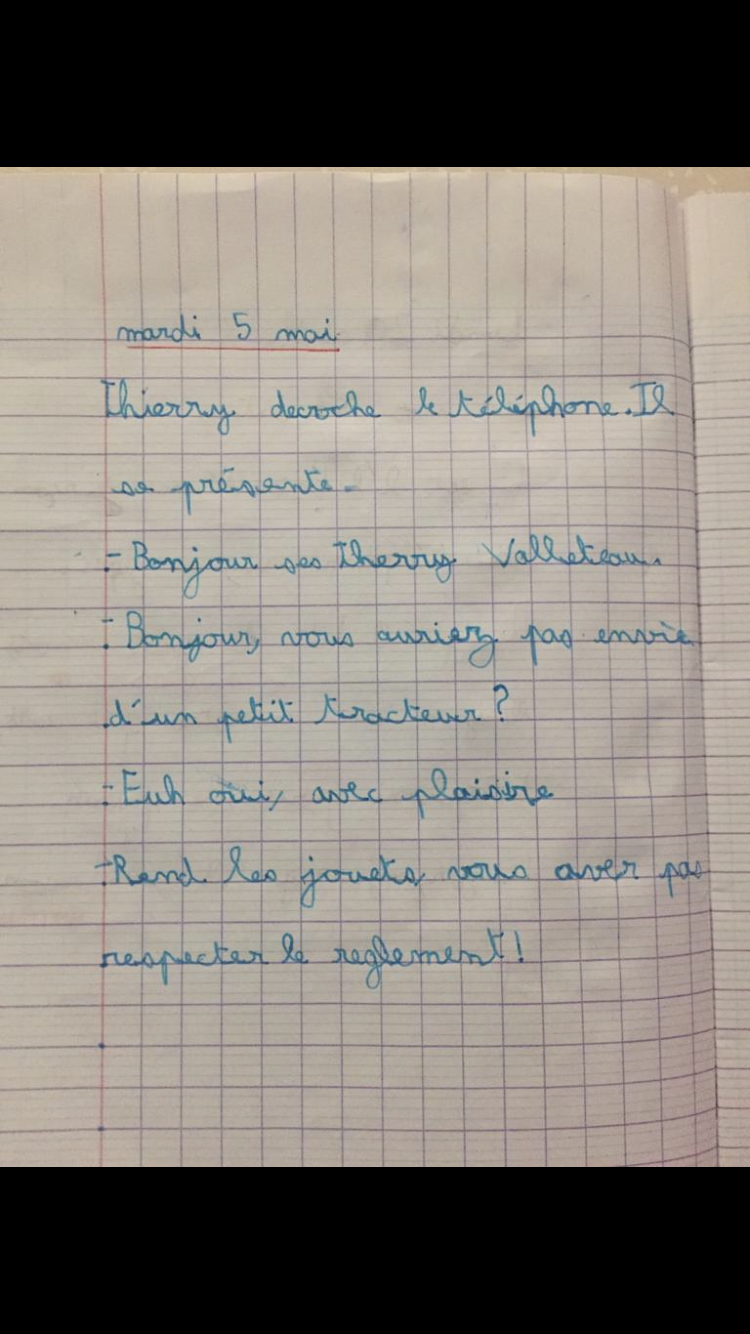 mardi 5 mai
Thierry decroche le téléphone. Il
se présente.
- Bonjour ses Therry Valleteau.
- Bonjour, vous auriez pas envie
d'un petit tracteur ?
- Euh oui, avec plaisire
- Rend les jouets, vous aver pas
respecter le reglement !